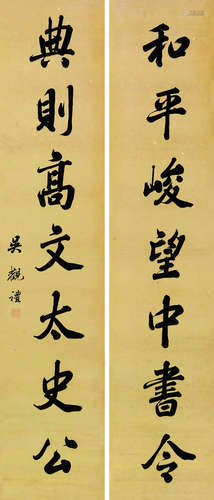 和平峻望中書令
典則高文太史公
吳觀禮